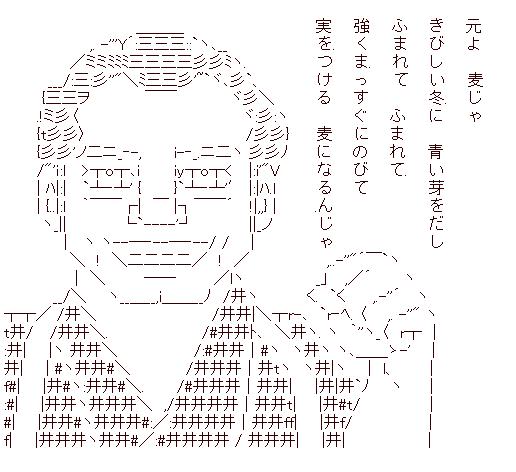 元よ　麦じゃ
きびしい冬に　青い芽をだし
ふまれて　ふまれて
強くまっすぐにのびて
実をつける　麦になるんじゃ